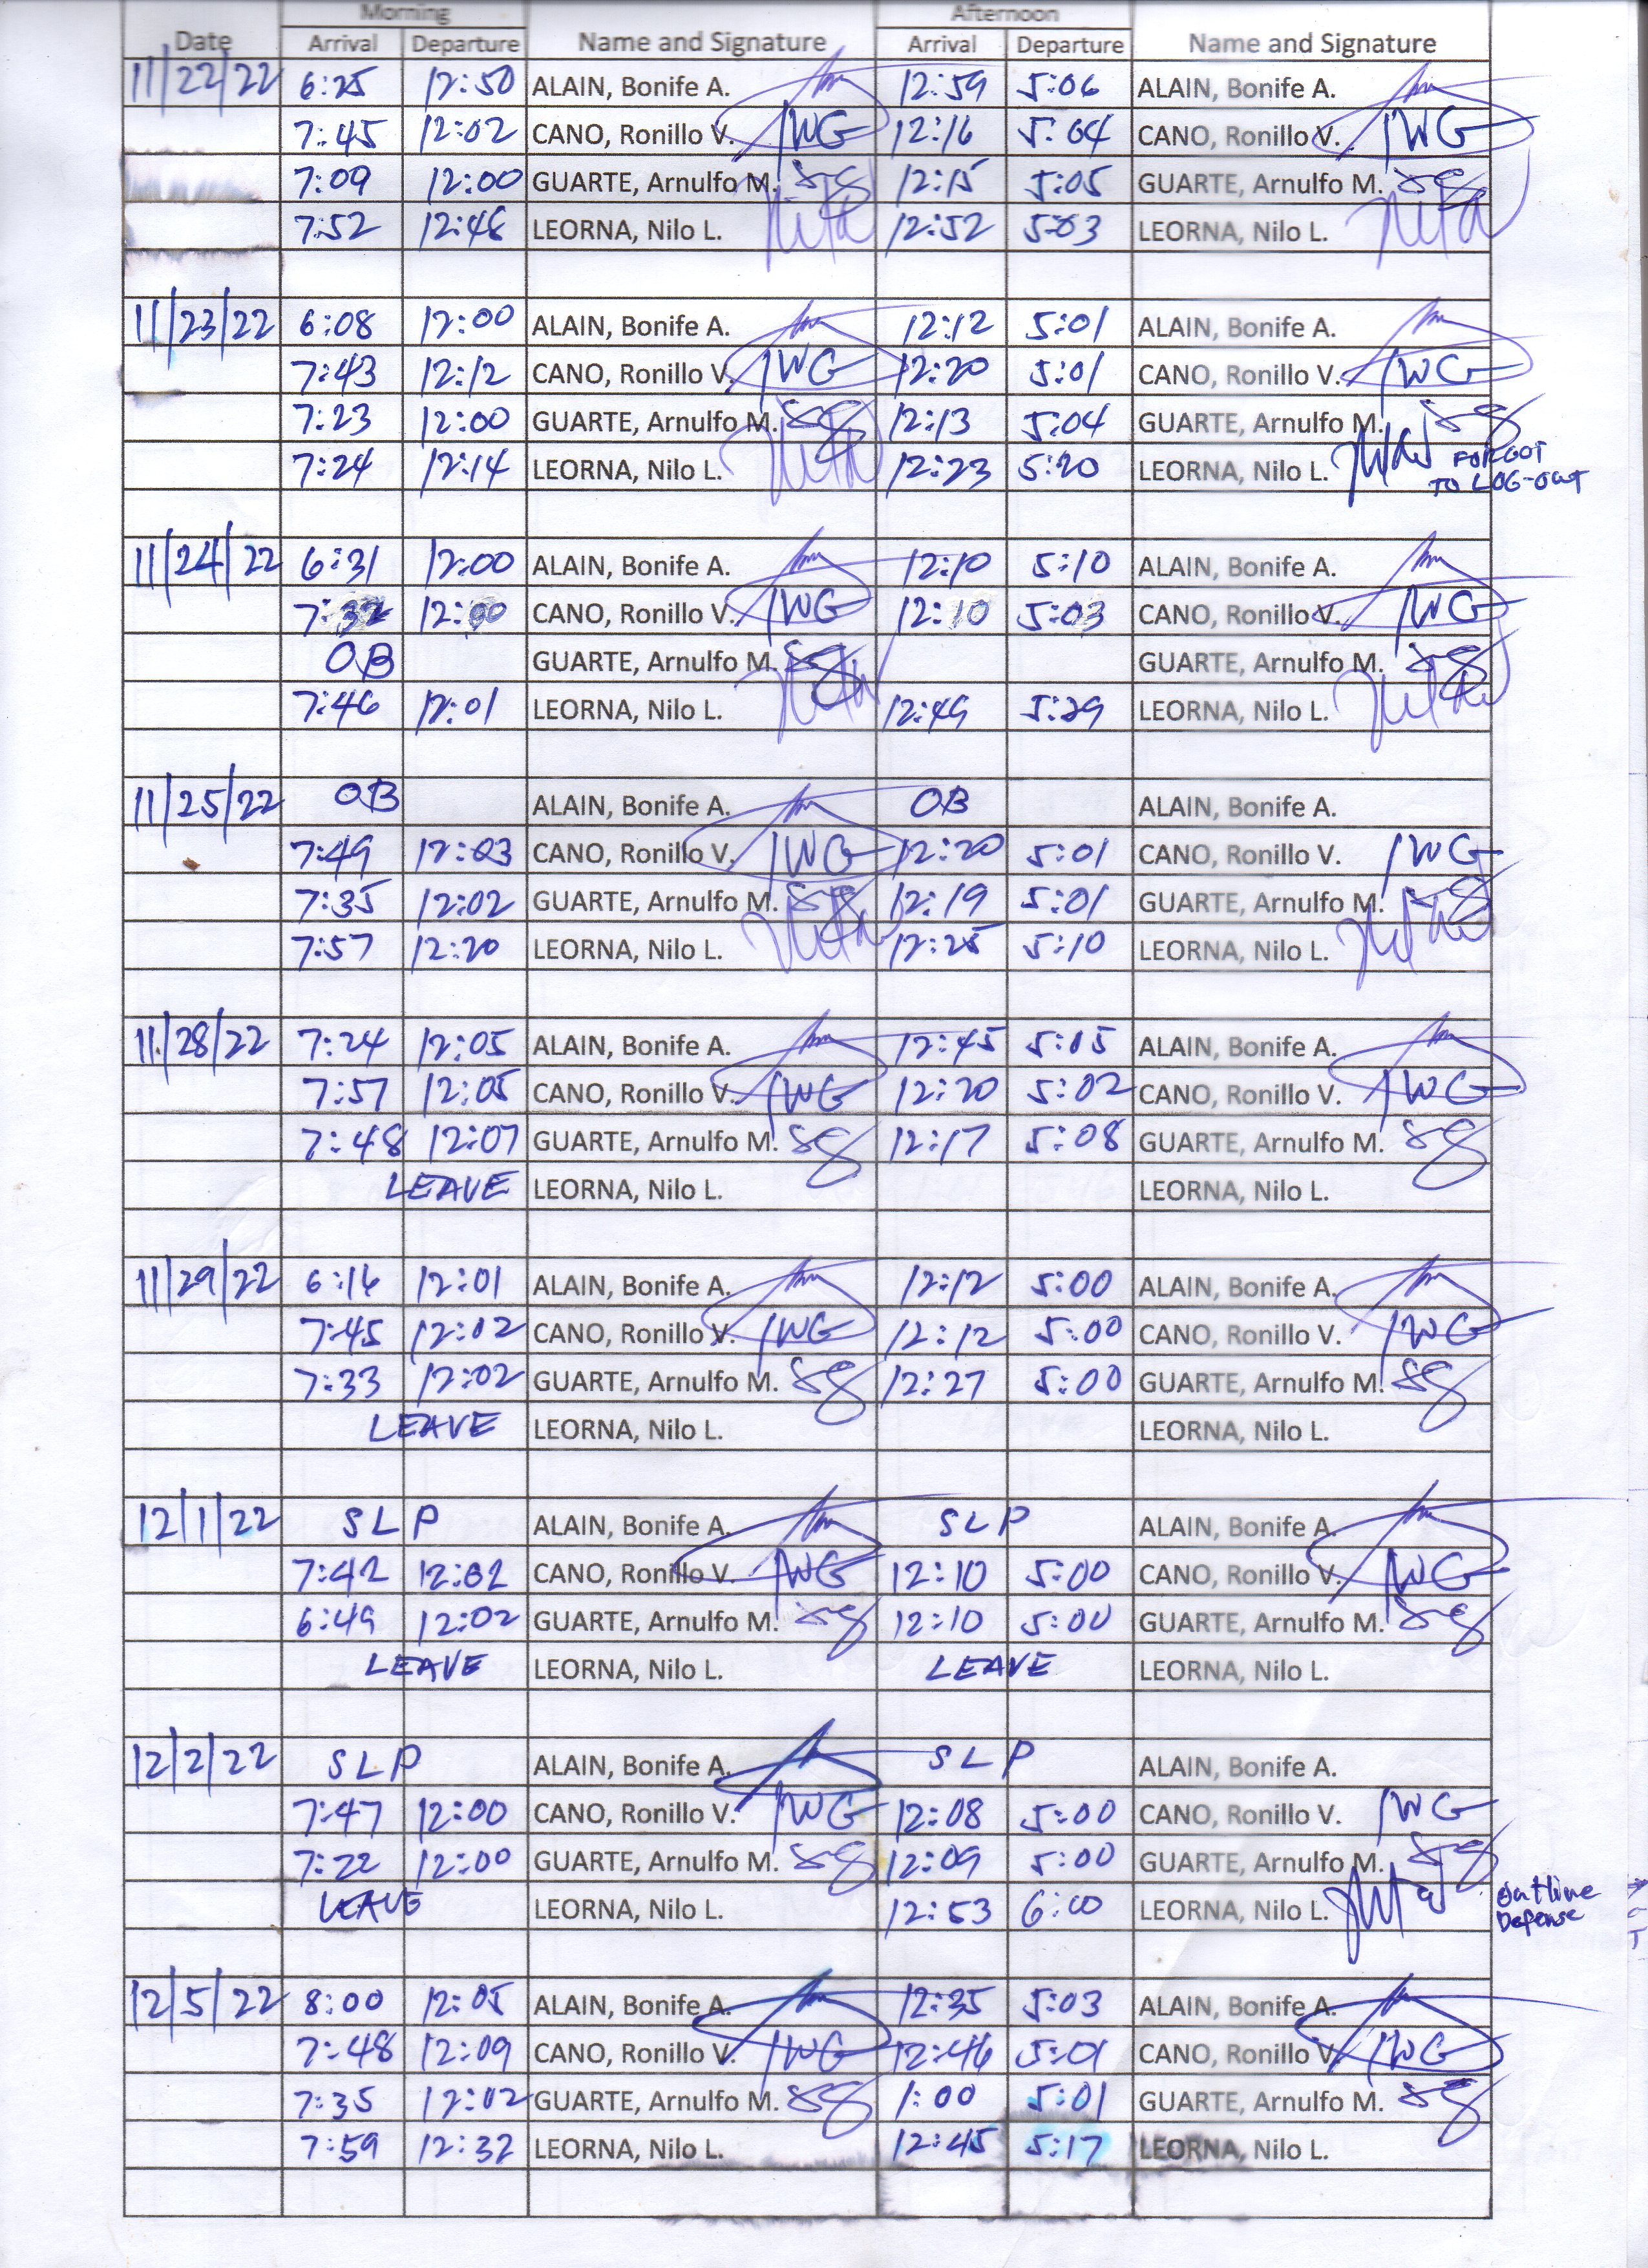 Morning Afternoon
Date Arrival Departure Name and Signature Arrival Departure Name and Signature
11/22/22 6:25 12:50 ALAIN, Bonife A. 12:59 5:06 ALAIN, Bonife A.
7:45 12:02 CANO, Ronillo V. 12:16 5:04 CANO, Ronillo V.
7:09 12:00 GUARTE, Arnulfo M. 12:15 5:05 GUARTE, Arnulfo M.
7:52 12:48 LEORNA, Nilo L. 12:52 5:03 LEORNA, Nilo L.
11/23/22 6:08 12:00 ALAIN, Bonife A. 12:12 5:01 ALAIN, Bonife A.
7:43 12:12 CANO, Ronillo V. 12:20 5:01 CANO, Ronillo V.
7:23 12:00 GUARTE, Arnulfo M. 12:13 5:04 GUARTE, Arnulfo M.
7:24 12:14 LEORNA, Nilo L. 12:23 5:20 LEORNA, Nilo L. FORGOT
TO LOG-OUT
11/24/22 6:31 12:00 ALAIN, Bonife A. 12:10 5:10 ALAIN, Bonife A.
7:32 12:00 CANO, Ronillo V. 12:10 5:03 CANO, Ronillo V.
OB GUARTE, Arnulfo M. GUARTE, Arnulfo M.
7:46 12:01 LEORNA, Nilo L. 12:49 5:29 LEORNA, Nilo L.
11/25/22 OB ALAIN, Bonife A. OB ALAIN, Bonife A.
7:49 12:03 CANO, Ronillo V. 12:20 5:01 CANO, Ronillo V.
7:35 12:02 GUARTE, Arnulfo M. 12:19 5:01 GUARTE, Arnulfo M.
7:57 12:20 LEORNA, Nilo L. 12:25 5:10 LEORNA, Nilo L.
11/28/22 7:24 12:05 ALAIN, Bonife A. 12:45 5:05 ALAIN, Bonife A.
7:57 12:05 CANO, Ronillo V. 12:20 5:02 CANO, Ronillo V.
7:48 12:07 GUARTE, Arnulfo M. 12:17 5:08 GUARTE, Arnulfo M.
LEAVE LEORNA, Nilo L. LEORNA, Nilo L.
11/29/22 6:16 12:01 ALAIN, Bonife A. 12:12 5:00 ALAIN, Bonife A.
7:45 12:02 CANO, Ronillo V. 12:12 5:00 CANO, Ronillo V.
7:33 12:02 GUARTE, Arnulfo M. 12:27 5:00 GUARTE, Arnulfo M.
LEAVE LEORNA, Nilo L. LEORNA, Nilo L.
12/1/22 SLP ALAIN, Bonife A. SLP ALAIN, Bonife A.
7:42 12:02 CANO, Ronillo V. 12:10 5:00 CANO, Ronillo V.
6:49 12:02 GUARTE, Arnulfo M. 12:10 5:00 GUARTE, Arnulfo M.
LEAVE LEORNA, Nilo L. LEAVE LEORNA, Nilo L.
12/2/22 SLP ALAIN, Bonife A. SLP ALAIN, Bonife A.
7:47 12:00 CANO, Ronillo V. 12:08 5:00 CANO, Ronillo V.
7:22 12:00 GUARTE, Arnulfo M. 12:09 5:00 GUARTE, Arnulfo M.
LEAVE LEORNA, Nilo L. 12:53 6:00 LEORNA, Nilo L. Outline
Defense
12/5/22 8:00 12:05 ALAIN, Bonife A. 12:35 5:03 ALAIN, Bonife A.
7:48 12:09 CANO, Ronillo V. 12:46 5:01 CANO, Ronillo V.
7:35 12:02 GUARTE, Arnulfo M. 1:00 5:01 GUARTE, Arnulfo M.
7:59 12:32 LEORNA, Nilo L. 12:45 5:17 LEORNA, Nilo L.